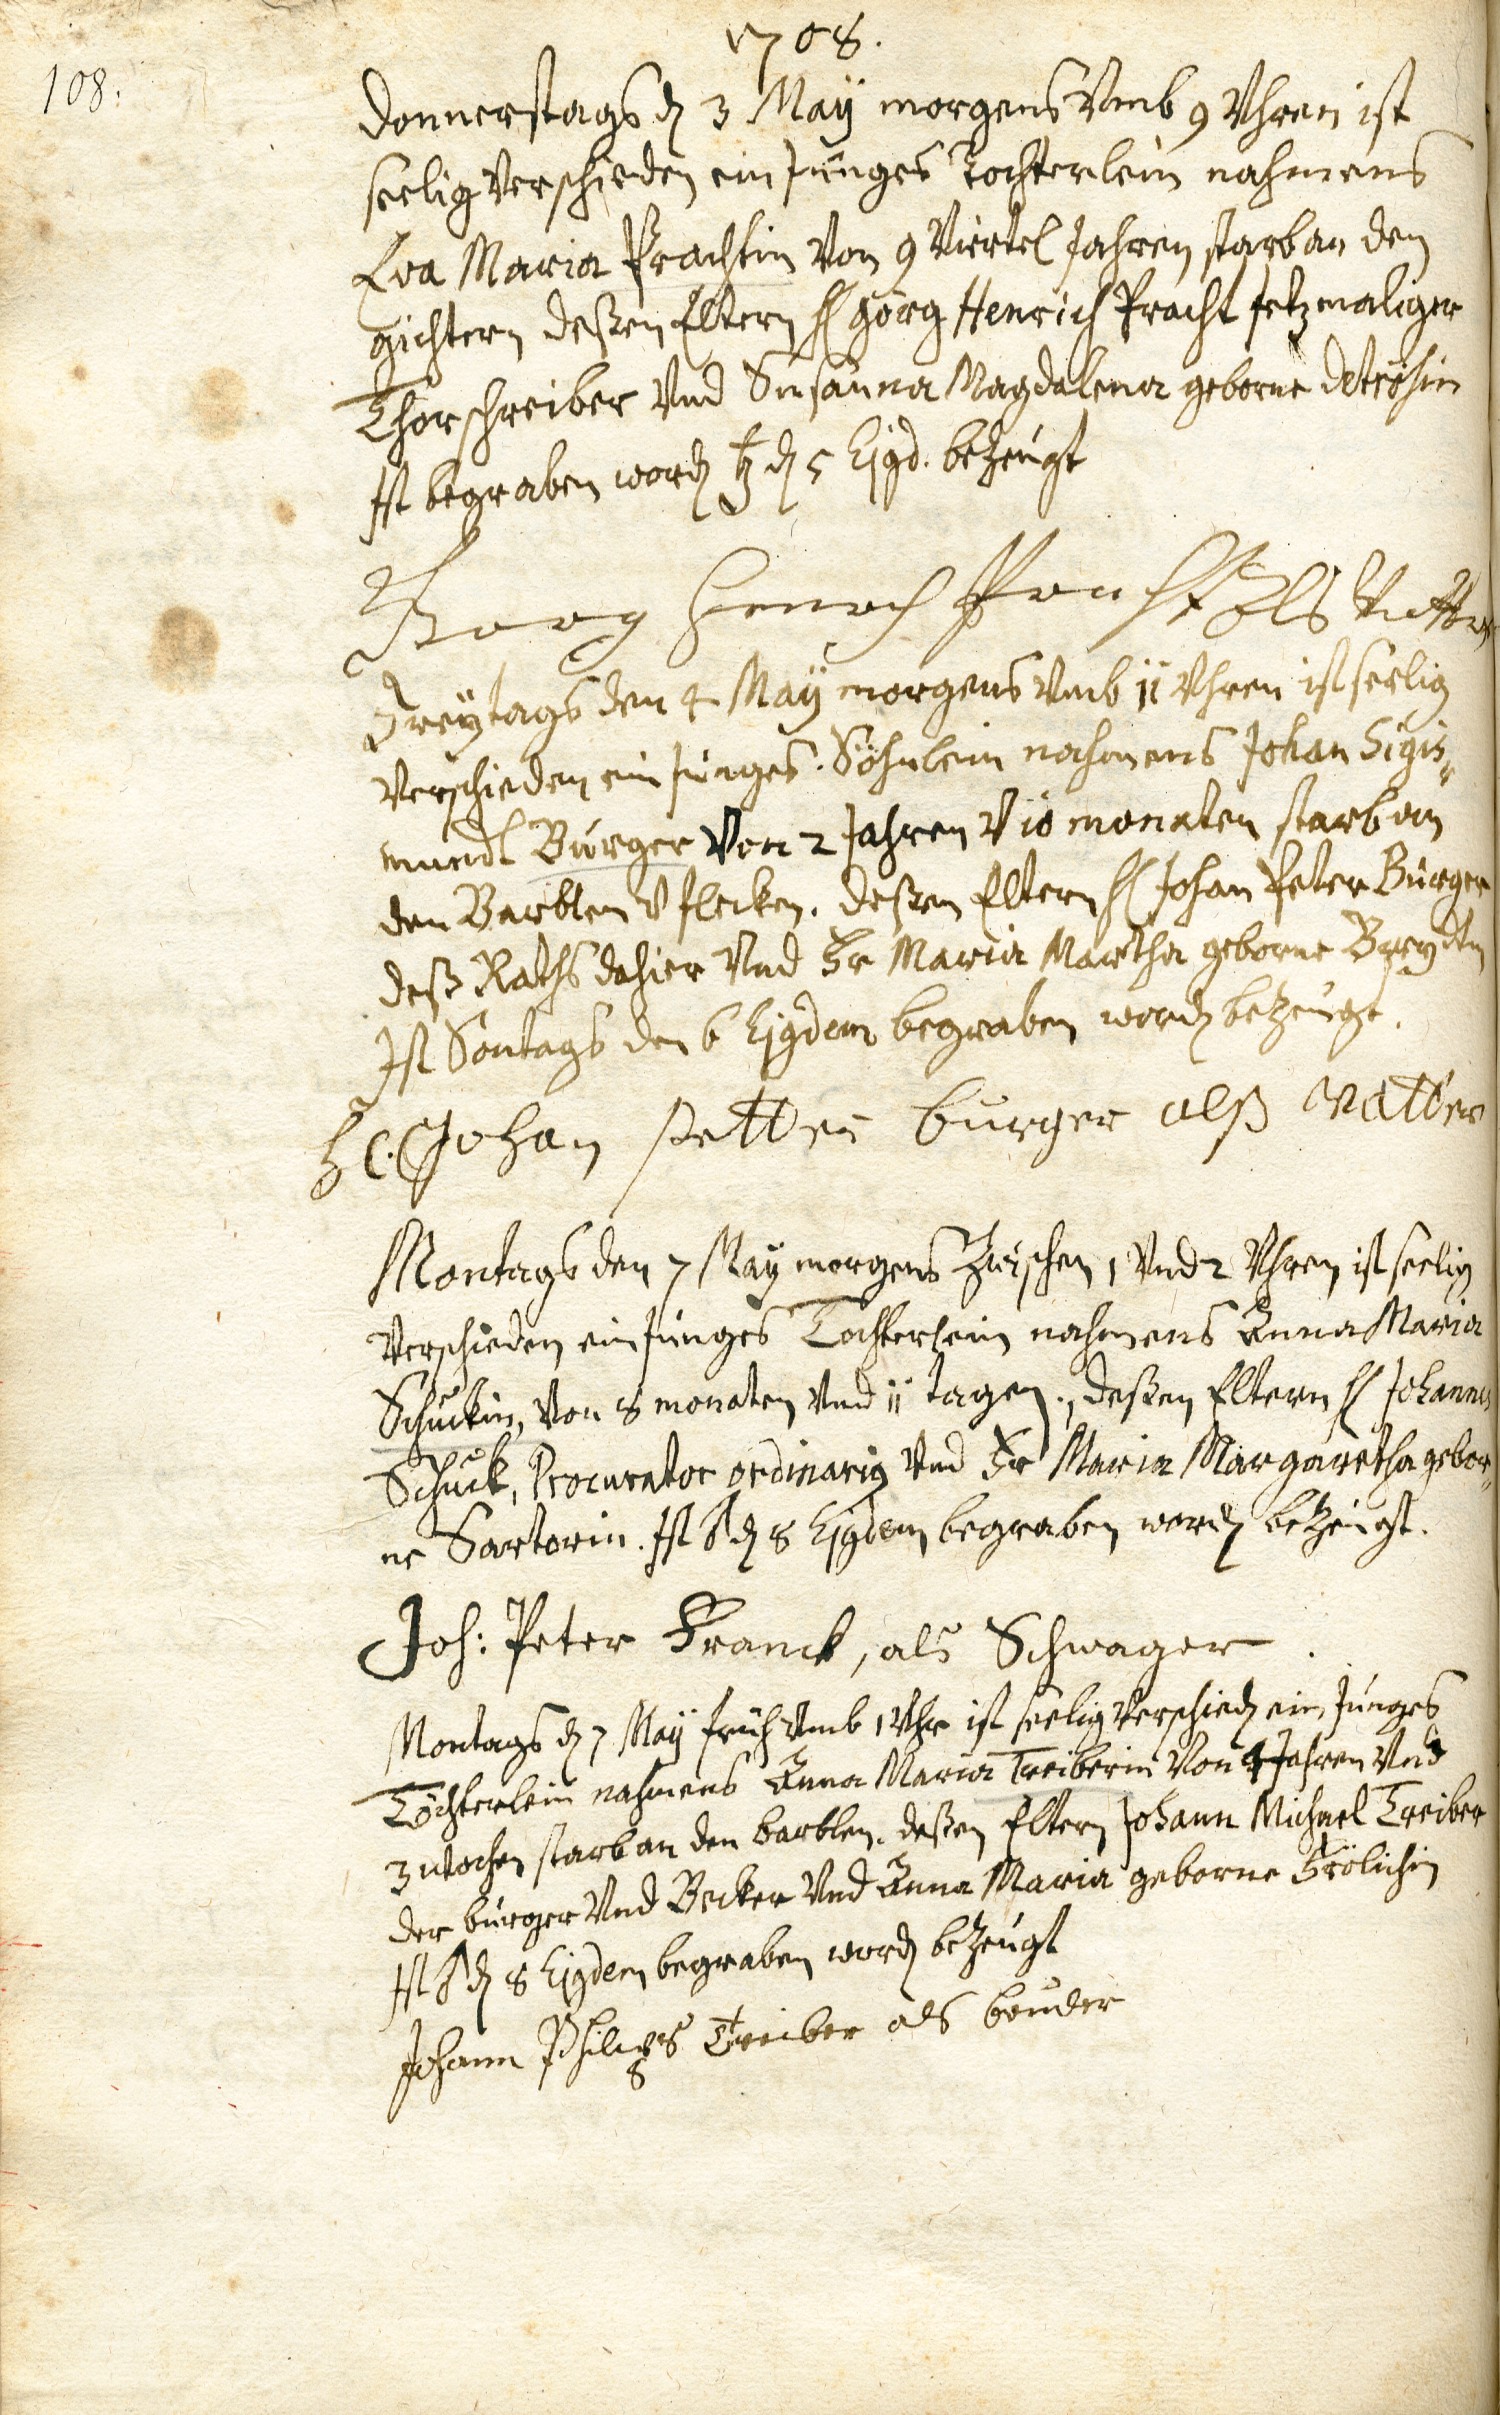 1708.
108.
Donnerstags d 3 Maÿ morgens Vmb 9 Vhren ist
seelig Verschieden ein Junges Tochterlein nahmens
Eva Maria Prachtin Von 9 Viertel Jahren starb an den
gichtern deßen Eltern H Görg Henrich Pracht Jetzmaliger
Thorschreiber Vnd Susanna Magdalena geborne
Ist begraben word ♄ d 5 Ejgd. bezeugt
Henrich Pracht Als Vatter
Freÿtags den 4 Maÿ morgens Vmb 11 Vhren ist seelig
Verschieden ein Junges Söhnlein nahmens Johan Sigis„
mundt Burger Von 2 Jahren V 10 monaten starb an
den Barblen V flecken. deßen Eltern H Johan Peter Burger
deß Raths dahier Vnd Fr Maria Martha geborne
Ist Sontags den 6 Ejgdem begraben word bezeugt.
Johan petter burger alß vatter
Montags den 7 Maÿ morgens Zwischen 1 Vnd 2 Vhren ist seelig
Verschieden ein Junges Tochterlein nahmens Anna Maria
Schuckin, Von 8 monaten Vnd 11 tagen., deßen Eltern H Johannes
Schuck, Procurator ordinarig Vnd Fr Maria Margaretha gebor„
ne Sartorin. Ist ♂ d 8 Ejgdem begraben word bezeugt.
Joh: Peter Franck, als Schwager
Montags d 7 Maÿ früh Vmb 1 Vhr ist seelig Verschied ein Junges
Töchterlein nahmens Anna Maria Treiberin Von 4 Jahren Vnd
3 wochen starb an den barblen. deßen Eltern Johann Michael Treiber
der burger Vnd Becker Vnd Anna Maria geborne Frölichin
Ist ♂ d 8 Ejgdem begraben word bezeugt
Johann Philips Treiber als bruder